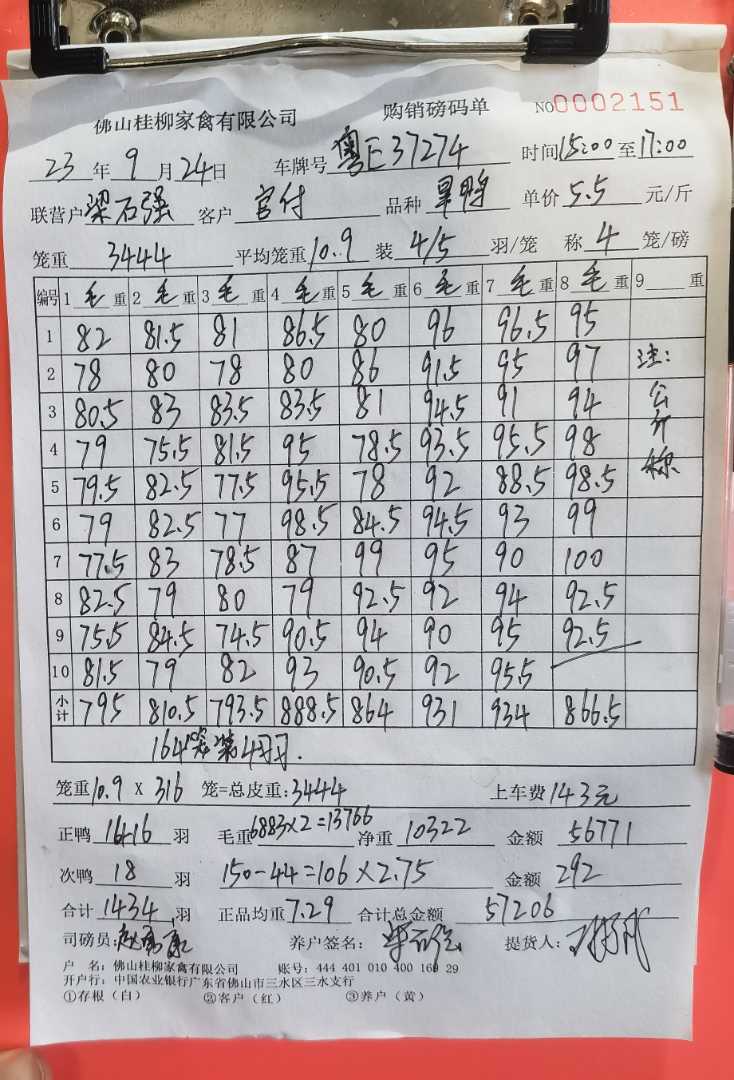 佛山桂柳家禽有限公司 购销磅码单 NO0002151
23 年 9 月 24 日 车牌号 粤E37274 时间 15:00 至 17:00
联营户 梁石强 客户 官付 品种 旱鸭 单价 5.5 元/斤
笼重 3444 平均笼重 10.9 装 4/5 羽/笼 称 4 笼/磅
编号 1 毛 重 2 毛 重 3 毛 重 4 毛 重 5 毛 重 6 毛 重 7 毛 重 8 毛 重 9 重
1 82 81.5 81 86.5 80 96 96.5 95
2 78 80 78 80 86 91.5 95 97 注:
3 80.5 83 83.5 83.5 81 94.5 91 94 公
4 79 75.5 81.5 95 78.5 93.5 95.5 98 斤
5 79.5 82.5 77.5 95.5 78 92 88.5 98.5 称
6 79 82.5 77 98.5 84.5 94.5 93 99
7 77.5 83 78.5 87 99 95 90 100
8 82.5 79 80 79 92.5 92 94 92.5
9 75.5 84.5 74.5 90.5 94 90 95 92.5
10 81.5 79 82 93 90.5 92 95.5
小计 795 810.5 793.5 888.5 864 931 934 866.5
164笼装4羽.
笼重 10.9 X 316 笼=总皮重: 3444 上车费 143元
正鸭 1416 羽 毛重 6883×2=13766 净重 10322 金额 56771
次鸭 18 羽 150-44=106×2.75 金额 292
合计 1434 羽 正品均重 7.29 合计总金额 57206
司磅员: 养户签名: 提货人:
户 名: 佛山桂柳家禽有限公司 账号: 444 401 010 400 169 29
开户行: 中国农业银行广东省佛山市三水区三水支行
①存根（白） ②客户（红） ③养户（黄）